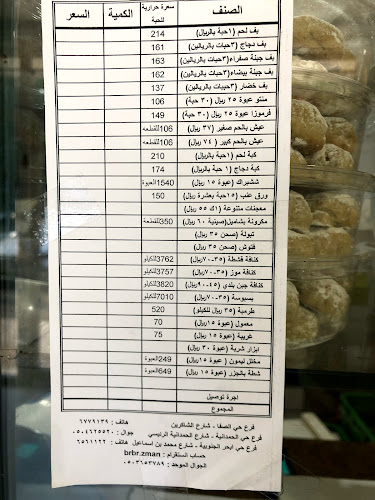 الصنف سعرة حرارية للحبة الكمية السعر
بف لحم (١حبة بالريال) 214
بف دجاج (٣حبات بالريالين) 161
بف جبنة صفراء(٣حبات بالريالين) 163
بف جبنة بيضاء(٣حبات بالريالين) 162
بف خضار (٣حبيات بالريالين) 137
منتو عبوة ٢٥ ريال (٣٠ حبة) 106
فرموزا عبوة ٢٥ ريال (٣٠ حبة) 149
عيش بالحم صغير (٣٧ ريال) 106للقطعه
عيش بالحم كبير (٧٤ ريال) 106للقطعه
كبة لحم (١حبة بالريال) 210
كبة دجاج (١حبة بالريال) 174
ششبراك (عبوة ١٥ ريال) 1540العبوة
ورق عنب (١٥حبة بعشرة ريال) 150
معجنات متنوعة (١ك ٥٥ ريال)
مكرونة بشاميل(صينية ٦٠ ريال) 350للقطعة
تبولة (صحن ٣٥ ريال)
فتوش (صحن ٣٥ ريال)
كنافة قشطة (٣٥-٧٠ريال) 3762للكيلو
كنافة موز (٣٥-٧٠ريال) 3757للكيلو
كنافة جبن بلدي (٤٥-٩٠ريال) 3820للكيلو
بسبوسة (٣٥-٧٠ريال) 7010للكيلو
طرمبة (٣٥ ريال للكيلو) 520
معمول (عبوة ١٥ريال) 70
غريبة (عبوة ١٥ ريال) 75
ابزار شربة (عبوة ٣٠ ريال)
مخلل ليمون ( عبوة ١٥ ريال) 249العبوة
شطة بالجزر (عبوة ١٥ ريال) 649العبوة
اجرة توصيل
المجموع
فرع حي الصفا - شارع الشاكرين هاتف : ٦٧٧٩١٣٩
فرع حي الحمدانية - شارع الحمدانية الرئيسي جوال : ٠٥٠٤٦٢٥٥٢٠
فرع حي ابحر الجنوبية - شارع محمد بن اسماعيل هاتف : ٦٥٦١١٢٢
حساب انستقرام : brbr.zman
الجوال الموحد : ٠٥٠٣٦٥٣٧٨٩